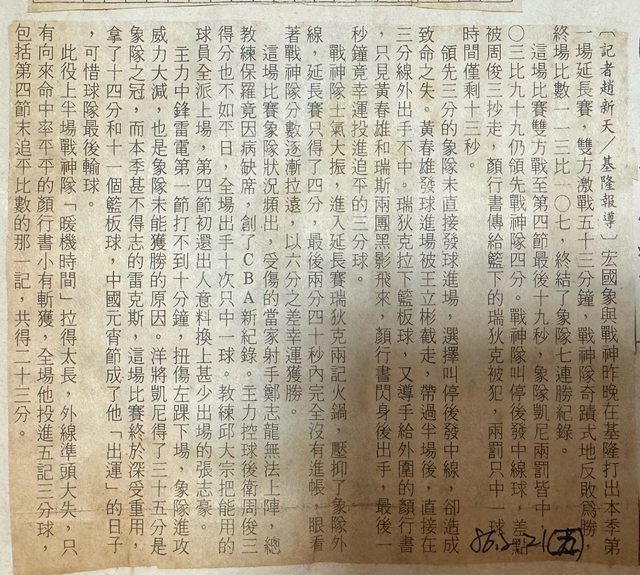 〔記者趙新天／基隆報導〕宏國象與戰神昨晚在基隆打出本季第
一場延長賽，雙方激戰五十三分鐘，戰神隊奇蹟式地反敗爲勝，
終場比數一一三比一〇七，終結了象隊七連勝紀錄。
這場比賽雙方戰至第四節最後十九秒，象隊凱尼兩罰皆中，一
〇三比九十九仍領先戰神隊四分。戰神隊叫停後發中線球，差點
被周俊三抄走，顏行書傳給籃下的瑞狄克被犯，兩罰只中一球，
時間僅剩十三秒。
領先三分的象隊未直接發球進場，選擇叫停後發中線，卻造成
致命之失。黃春雄發球進場被王立彬截走，帶過半場後，直接在
三分線外出手不中。瑞狄克拉下籃板球，又導手給外圍的顏行書
，只見黃春雄和瑞斯兩團黑影飛來，顏行書閃身後出手，最後一
秒鐘竟幸運投進追平的三分球。
戰神隊士氣大振，進入延長賽瑞狄克兩記火鍋，壓抑了象隊外
線，延長賽只得了四分，最後兩分四十秒內完全沒有進帳，眼看
著戰神隊分數逐漸拉遠，以六分之差幸運獲勝。
這場比賽象隊狀況頻出，受傷的當家射手鄭志龍無法上陣，總
教練保羅竟因病缺席，創了ＣＢＡ新紀錄。主力控球後衛周俊三
得分也不如平日，全場出手十次只中一球。教練邱大宗把能用的
球員全派上場，第四節初還出人意料換上甚少出場的張志豪。
主力中鋒雷電第一節打不到十分鐘，扭傷左踝下場，象隊進攻
威力大減，也是象隊未能獲勝的原因。洋將凱尼得了三十五分是
象隊之冠，而本季甚不得志的雷克斯，這場比賽終於深受重用，
拿了十四分和十一個籃板球，中國元宵節成了他「出運」的日子
，可惜球隊最後輸球。
此役上半場戰神隊「暖機時間」拉得太長，外線準頭大失，只
有向來命中率平平的顏行書小有斬獲，全場他投進五記三分球，
包括第四節末追平比數的那一記，共得二十三分。
86.2.21(五)